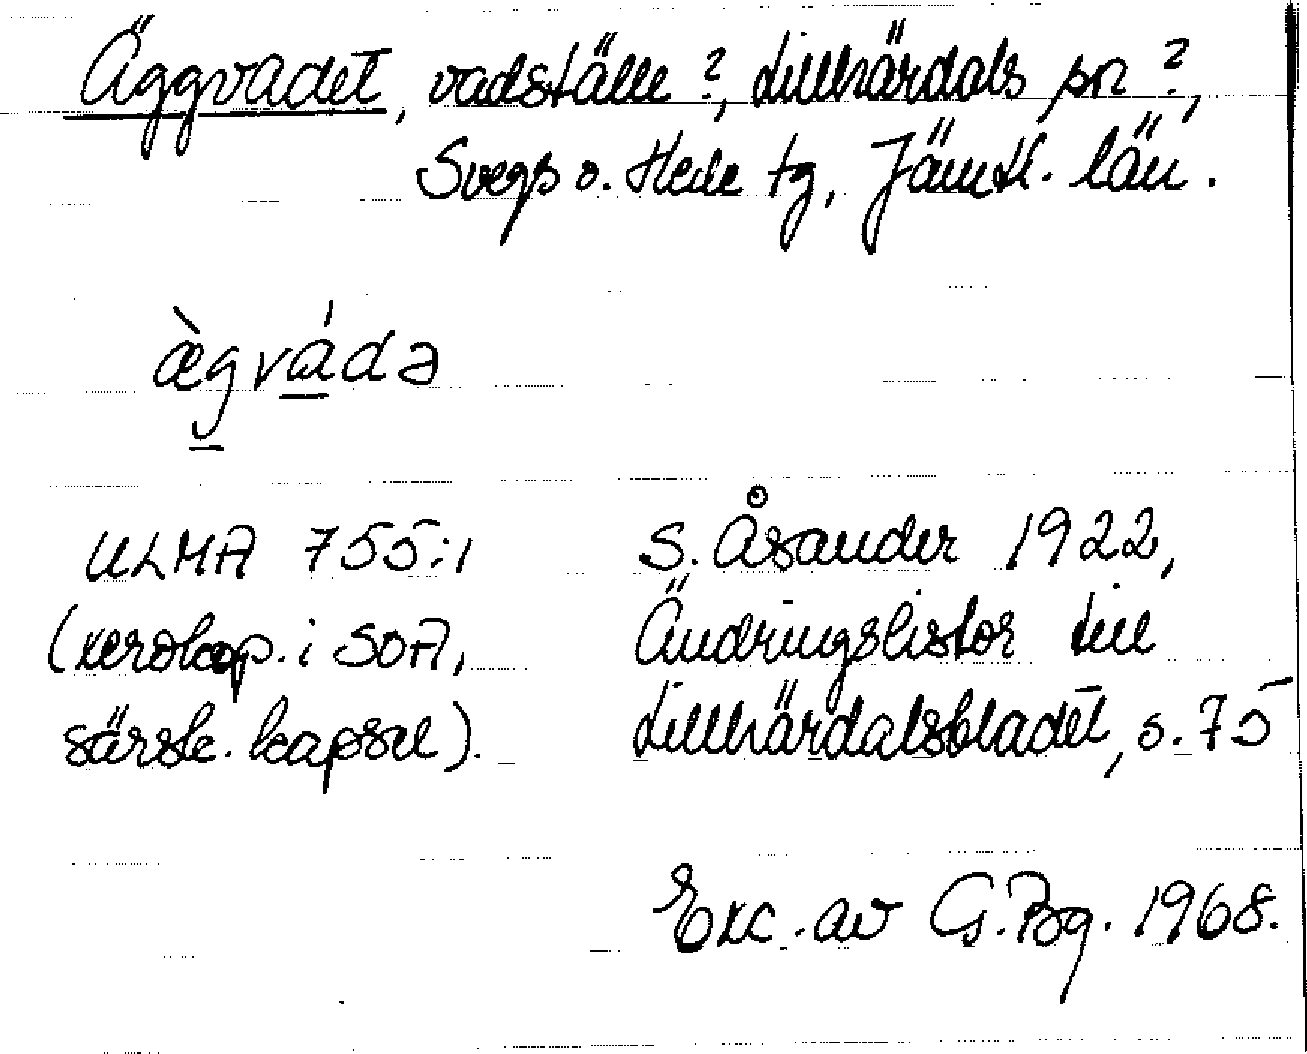 Äggvadet, vadställe?, Lillhärdals sn?,
Svegs o. Hede tg, Jämtl. län.
ægvádə
ULMA 755:1
(xerokop. i SOA,
särsk. kapsel).
S. Åsander 1922,
Ändringslistor till
Lillhärdalsbladet, s. 75
Exc. av G. Bg. 1968.